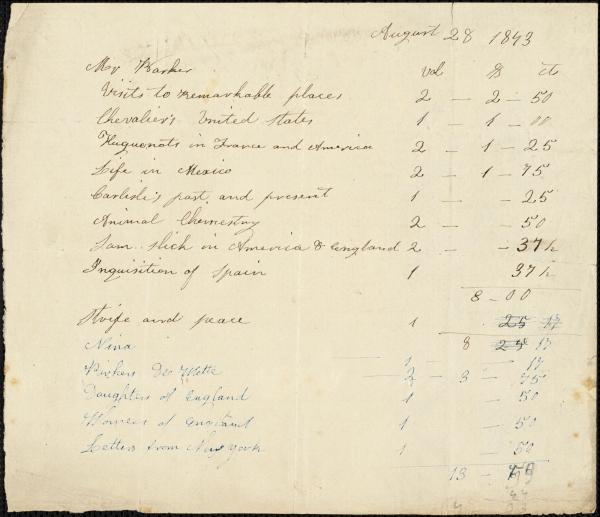 August 28 1843
Mr Barker vol $ cts
Visits to remarkable places 2 — 2 — 50
Chevalier's United states 1 — 1 — 00
Huguenots in France and America 2 — 1 — 25
Life in Mexico 2 — 1 — 75
Carlisle's past and present 1 — 25
Animal Chemestry 2 — 50
Sam slick in America & England 2 — — 37½
Inquisition of Spain 1 37½
8 — 00
Strife and peace 1 25 17
8 25 17
Nina 1 — 17
De Wette 2 — 3 — 75
Daughters of England 1 — 50
Women of England 1 — 50
Letters from New York 1 — 50
13 —